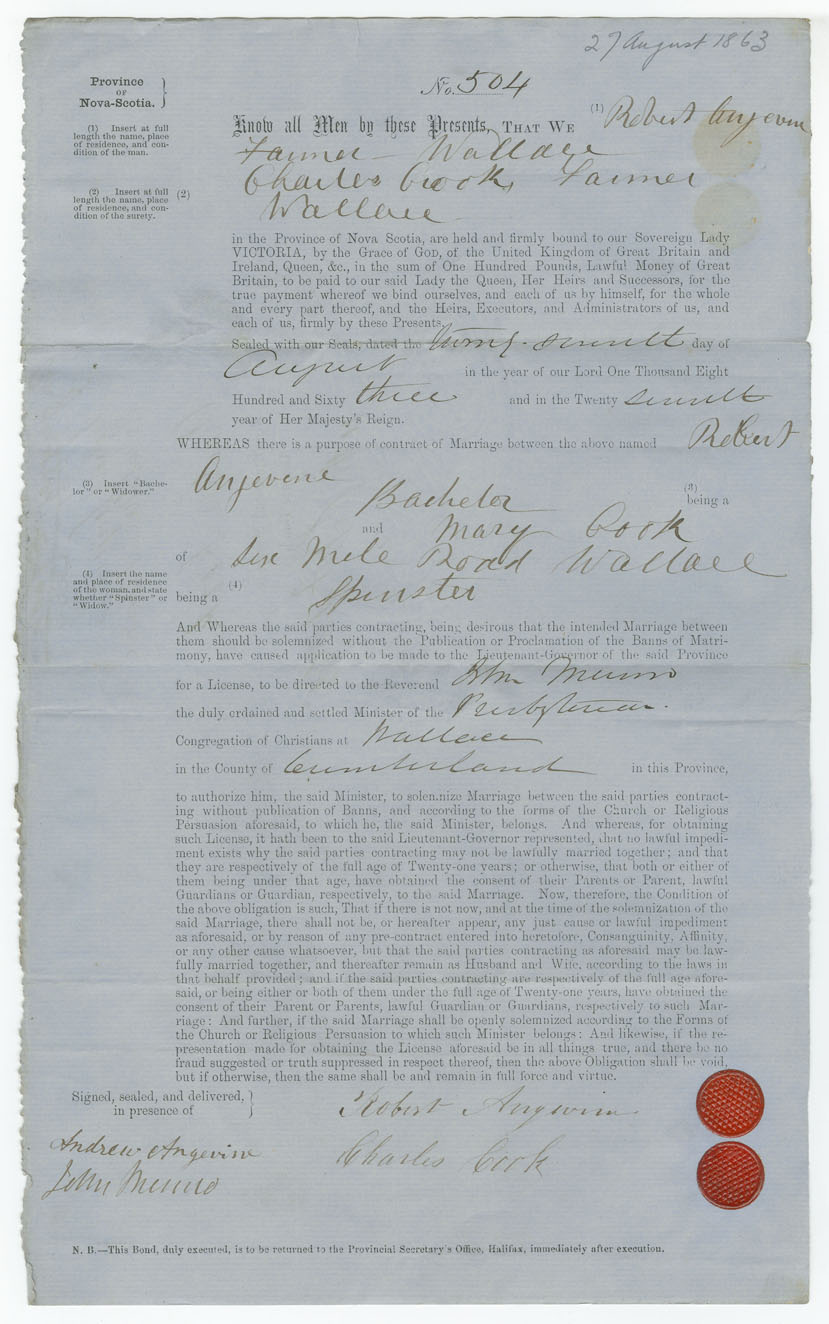 27 August 1863
Province
OF
Nova-Scotia.
No. 504
(1) Insert at full
length the name, place
of residence, and con-
dition of the man.
Know all Men by these Presents, THAT WE (1) Robert Angevine
Farmer Wallace
(2) Insert at full
length the name, place
of residence, and con-
dition of the surety.
(2) Charles Cook, Farmer
Wallace
in the Province of Nova Scotia, are held and firmly bound to our Sovereign Lady
VICTORIA, by the Grace of GOD, of the United Kingdom of Great Britain and
Ireland, Queen, &c., in the sum of One Hundred Pounds, Lawful Money of Great
Britain, to be paid to our said Lady the Queen, Her Heirs and Successors, for the
true payment whereof we bind ourselves, and each of us by himself, for the whole
and every part thereof, and the Heirs, Executors, and Administrators of us, and
each of us, firmly by these Presents.
Sealed with our Seals, dated the twenty-seventh day of
August in the year of our Lord One Thousand Eight
Hundred and Sixty three and in the Twenty seventh
year of Her Majesty's Reign.
WHEREAS there is a purpose of contract of Marriage between the above named Robert
Angevine
(3) Insert "Bache-
lor" or "Widower."
(3) being a
Bachelor
and Mary Cook
of Six Mile Road Wallace
(4) Insert the name
and place of residence
of the woman, and state
whether "Spinster" or
"Widow."
being a (4) Spinster
And Whereas the said parties contracting, being desirous that the intended Marriage between
them should be solemnized without the Publication or Proclamation of the Banns of Matri-
mony, have caused application to be made to the Lieutenant-Governor of the said Province
for a License, to be directed to the Reverend John Munro
the duly ordained and settled Minister of the Presbyterian
Congregation of Christians at Wallace
in the County of Cumberland in this Province,
to authorize him, the said Minister, to solemnize Marriage between the said parties contract-
ing without publication of Banns, and according to the forms of the Church or Religious
Persuasion aforesaid, to which he, the said Minister, belongs. And whereas, for obtaining
such License, it hath been to the said Lieutenant-Governor represented, that no lawful impedi-
ment exists why the said parties contracting may not be lawfully married together; and that
they are respectively of the full age of Twenty-one years; or otherwise, that both or either of
them being under that age, have obtained the consent of their Parents or Parent, lawful
Guardians or Guardian, respectively, to the said Marriage. Now, therefore, the Condition of
the above obligation is such, That if there is not now, and at the time of the solemnization of the
said Marriage, there shall not be, or hereafter appear, any just cause or lawful impediment
as aforesaid, or by reason of any pre-contract entered into heretofore, Consanguinity, Affinity,
or any other cause whatsoever, but that the said parties contracting as aforesaid may be law-
fully married together, and thereafter remain as Husband and Wife, according to the laws in
that behalf provided; and if the said parties contracting are respectively of the full age afore-
said, or being either or both of them under the full age of Twenty-one years, have obtained the
consent of their Parent or Parents, lawful Guardian or Guardians, respectively to such Mar-
riage: And further, if the said Marriage shall be openly solemnized according to the Forms of
the Church or Religious Persuasion to which such Minister belongs: And likewise, if the re-
presentation made for obtaining the License aforesaid be in all things true, and there be no
fraud suggested or truth suppressed in respect thereof, then the above Obligation shall be void,
but if otherwise, then the same shall be and remain in full force and virtue.
Signed, sealed, and delivered,
in presence of
Robert Angevine
Andrew Angevine
Charles Cook
John Munro
N. B.—This Bond, duly executed, is to be returned to the Provincial Secretary's Office, Halifax, immediately after execution.